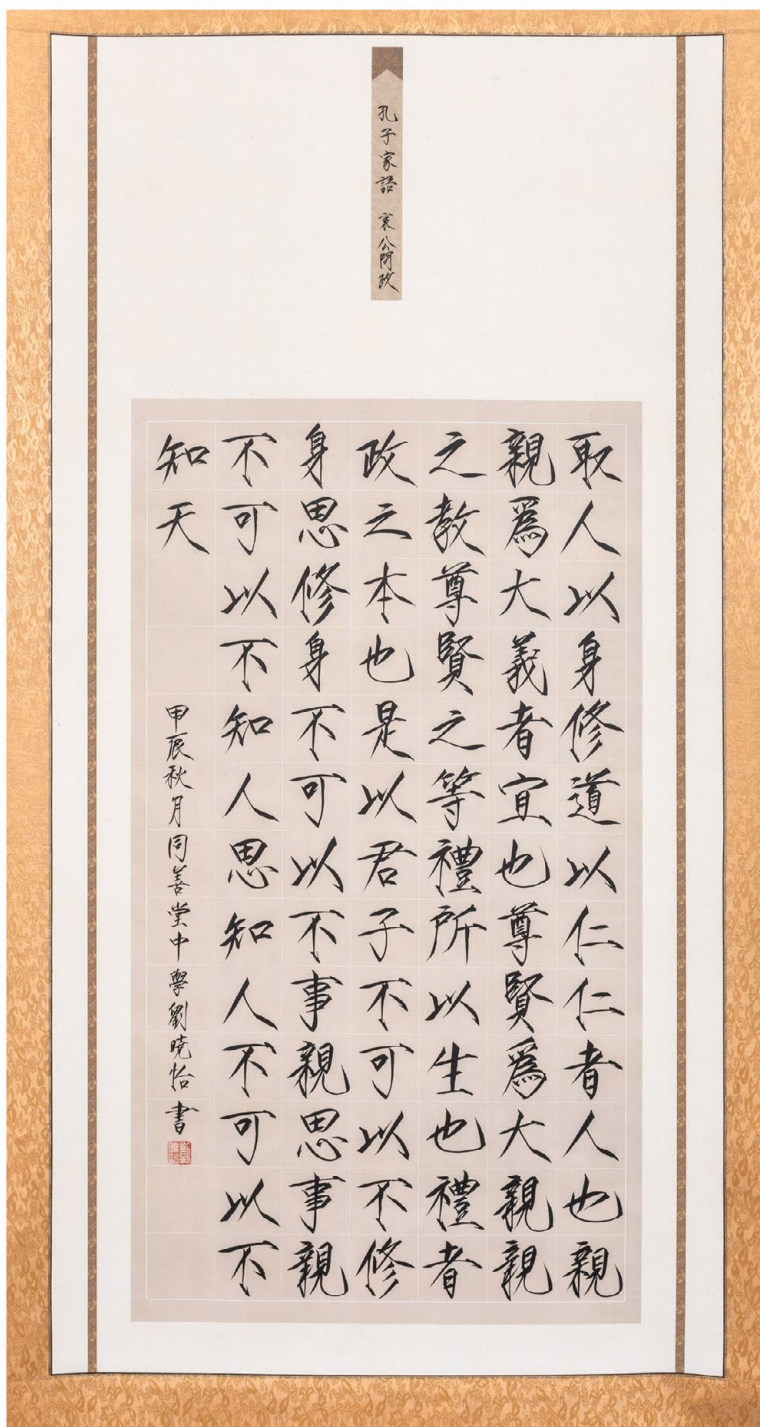 孔子家語 哀公問政
取人以身修道以仁仁者人也親
親為大義者宜也尊賢為大親親
之教尊賢之等禮所以生也禮者
政之本也是以君子不可以不修
身思修身不可以不事親思事親
不可以不知人思知人不可以不
知天
甲辰秋月同善堂中學劉曉怡書